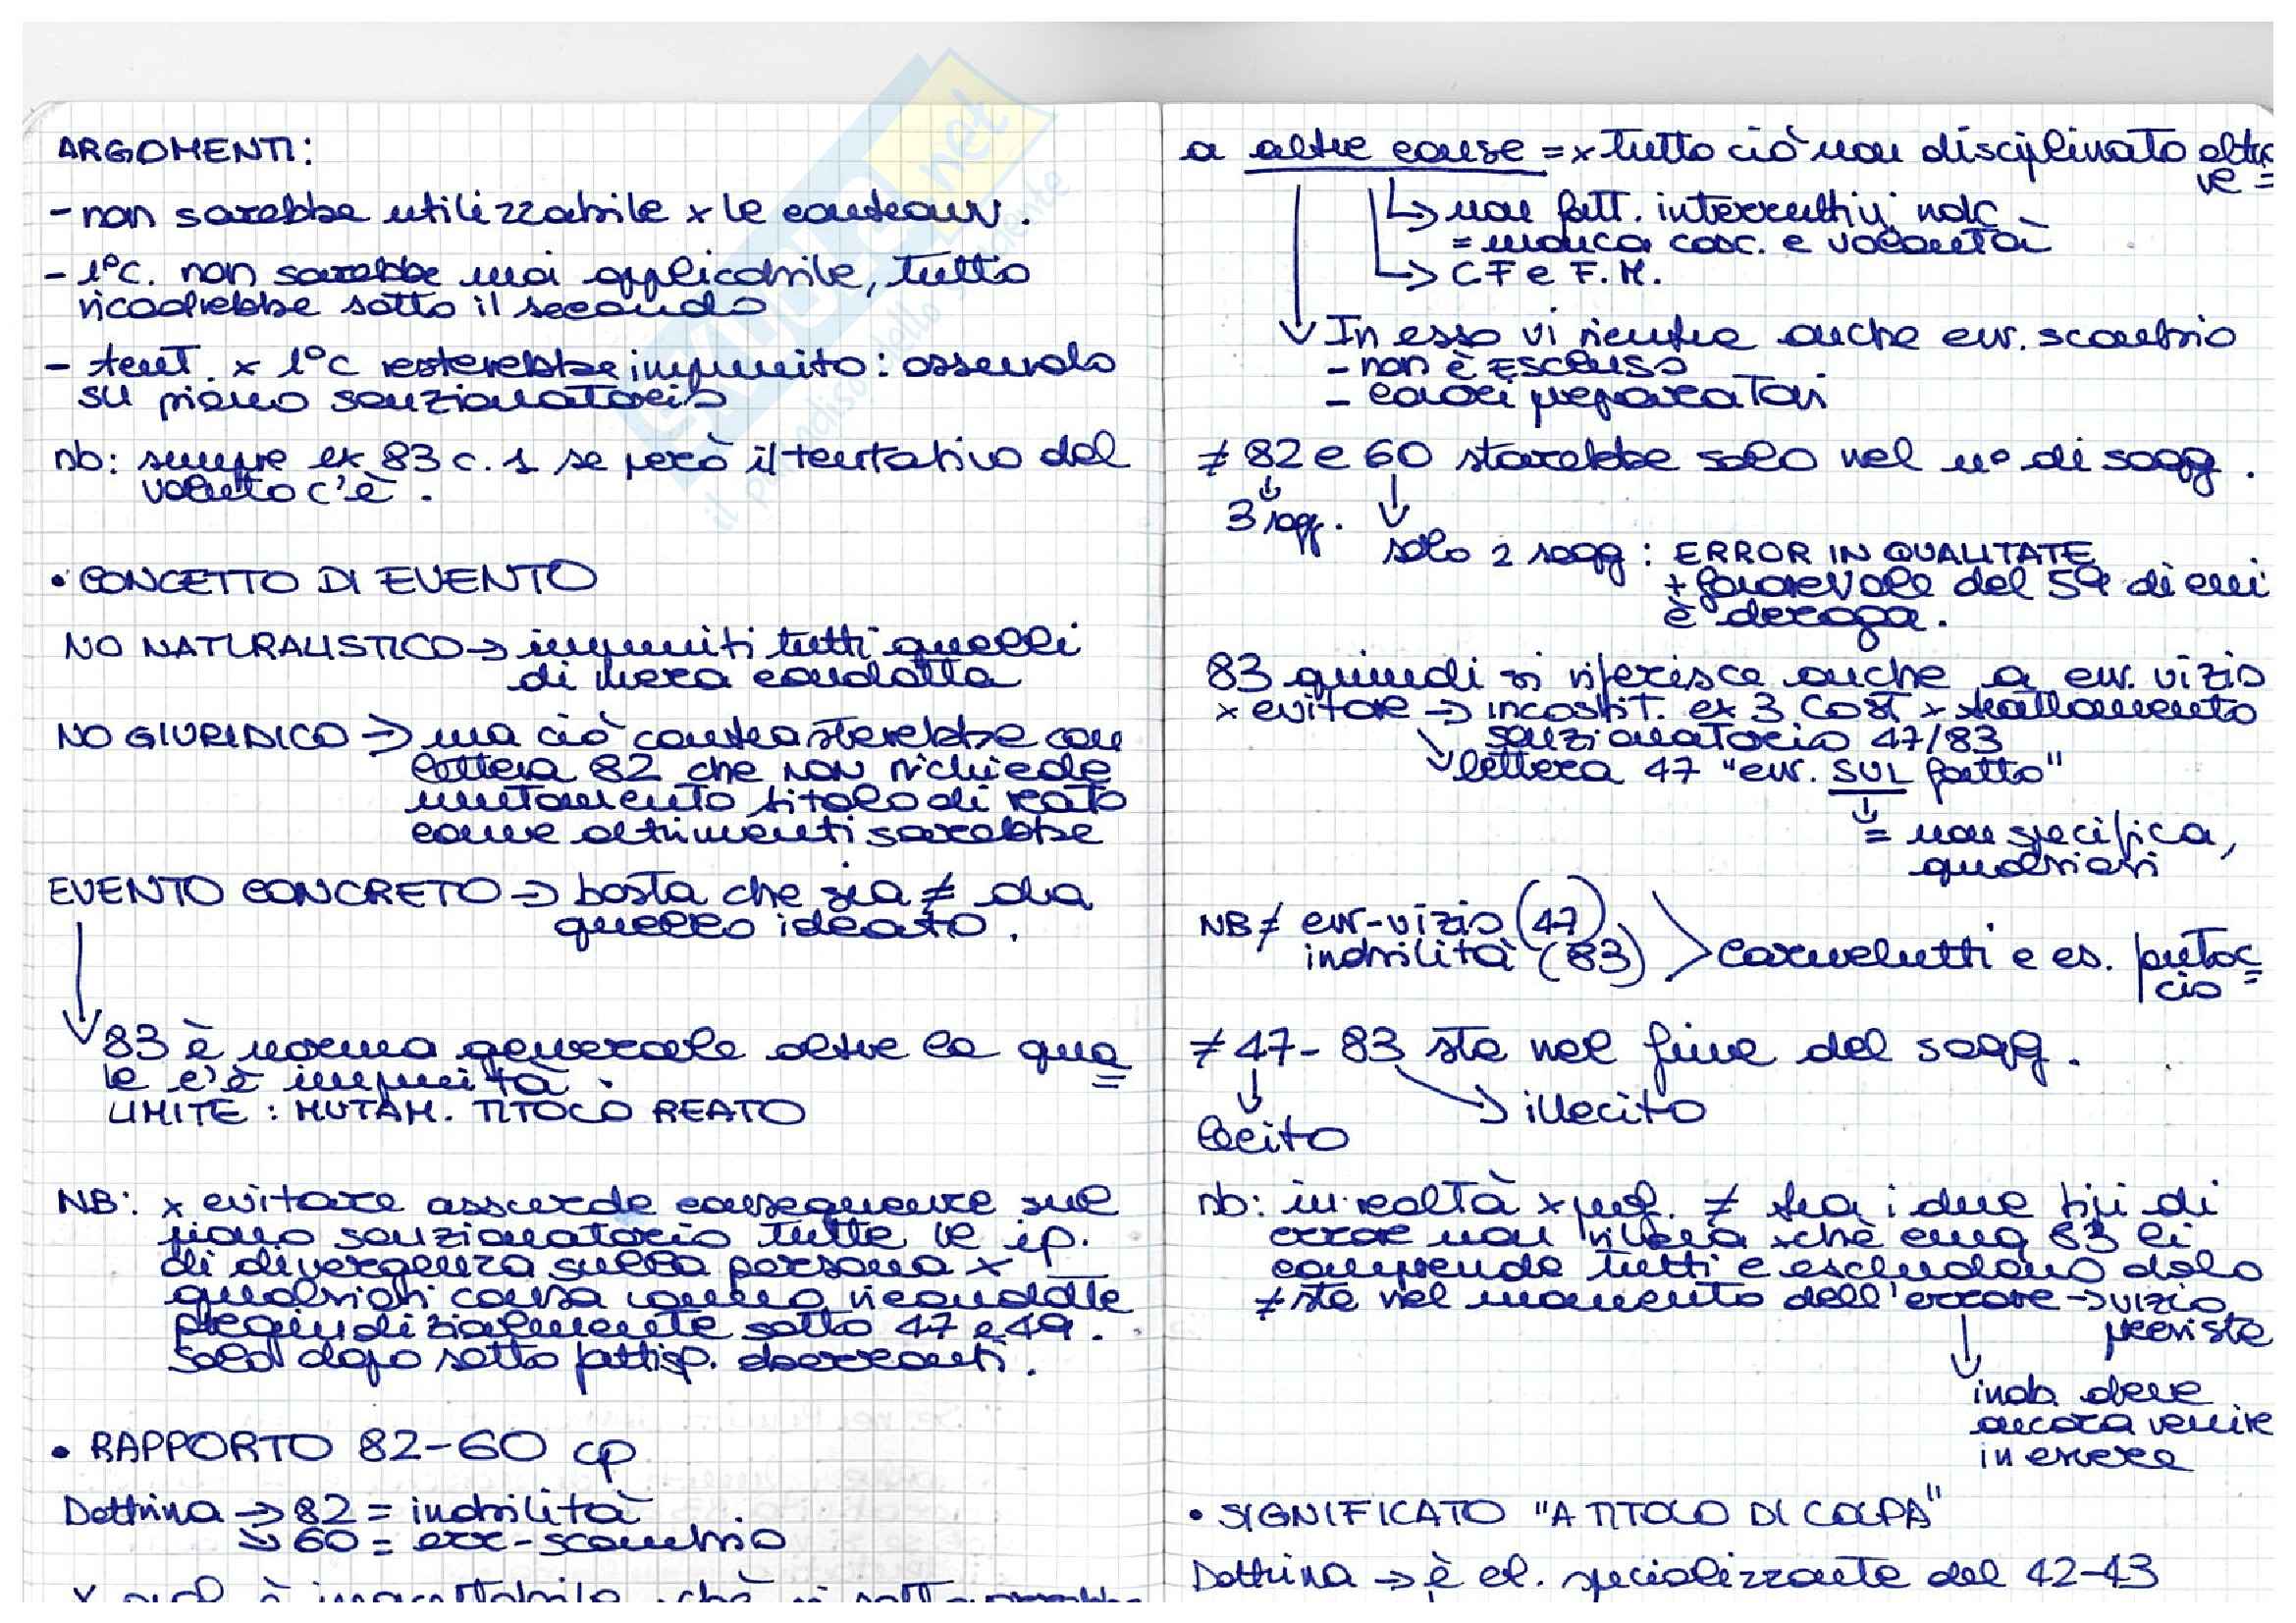 ARGOMENTI:
- non sarebbe utilizzabile x le contravv.
- 1°c. non sarebbe mai applicabile, tutto
ricadrebbe sotto il secondo
- tent. x 1°c resterebbe impunito: assurdo
su piano sanzionatorio
nb: sempre ex 83 c. 1 se però il tentativo del
voluto c'è.
• CONCETTO DI EVENTO
NO NATURALISTICO → impuniti tutti quelli
di mera condotta
NO GIURIDICO → ma ciò contrasterebbe con
lettera 82 che NON richiede
mutamento titolo di reato
come altrimenti sarebbe
EVENTO CONCRETO → basta che sia ≠ da
quello ideato.
↓ 83 è norma generale oltre la qua=
le c'è impunità.
LIMITE: MUTAM. TITOLO REATO
NB: x evitare assurde conseguenze sul
piano sanzionatorio tutte le ip.
di divergenza sulla persona x
qualsiasi causa vanno ricondotte
pregiudizialmente sotto 47 e 49.
Solo dopo sotto fattisp. aberranti.
• RAPPORTO 82-60 cp
Dottrina → 82 = inabilità
↘ 60 = err-scambio
x prof. è inaccettabile
a altre cause = x tutto ciò non disciplinato altro
ve =
↳ non fatt. interruttivi ndc
= manca cosc. e volontà
↳ C.F e F.M.
↓ In esso vi rientra anche err. scambio
- non è ESCLUSO
- lavori preparatori
≠ 82 e 60 starebbe solo nel n° di sogg.
↓ 3 sogg. ↓
solo 2 sogg: ERROR IN QUALITATE
+ favorevole del 59 di cui
è deroga.
83 quindi si riferisce anche a err. vizio
x evitare → incostit. ex 3 Cost x trattamento
sanzionatorio 47/83
↘ lettera 47 "err. SUL fatto"
↓
= non specifica,
qualsiasi
NB ≠ err-vizio (47)
inabilità (83) > Carnelutti e es. fantoc=
cio
≠ 47-83 sta nel fine del sogg.
↓ ↘ illecito
lecito
nb: in realtà x prof. ≠ tra i due tipi di
errore non rileva xchè cmq 83 li
comprende tutti e escludono dolo
≠ sta nel momento dell'errore → vizio
preesiste
↓
inab. deve
ancora venire
in essere
• SIGNIFICATO "A TITOLO DI COLPA"
Dottrina → è el. specializzante del 42-43